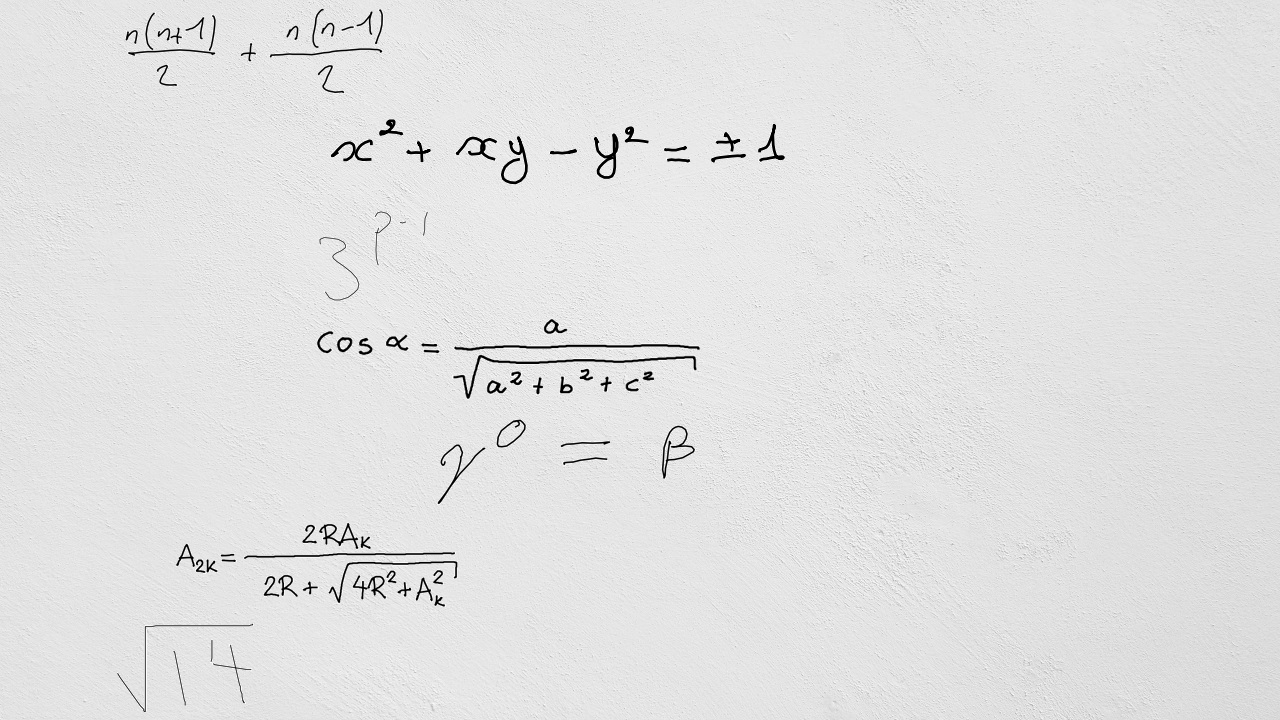 \frac{n(n+1)}{2} + \frac{n(n-1)}{2}
x^2 + xy - y^2 = \pm 1
3^{p-1}
\cos \alpha = \frac{a}{\sqrt{a^2 + b^2 + c^2}}
\gamma^0 = \beta
A_{2K} = \frac{2RA_K}{2R + \sqrt{4R^2 + A_K^2}}
\sqrt{14}